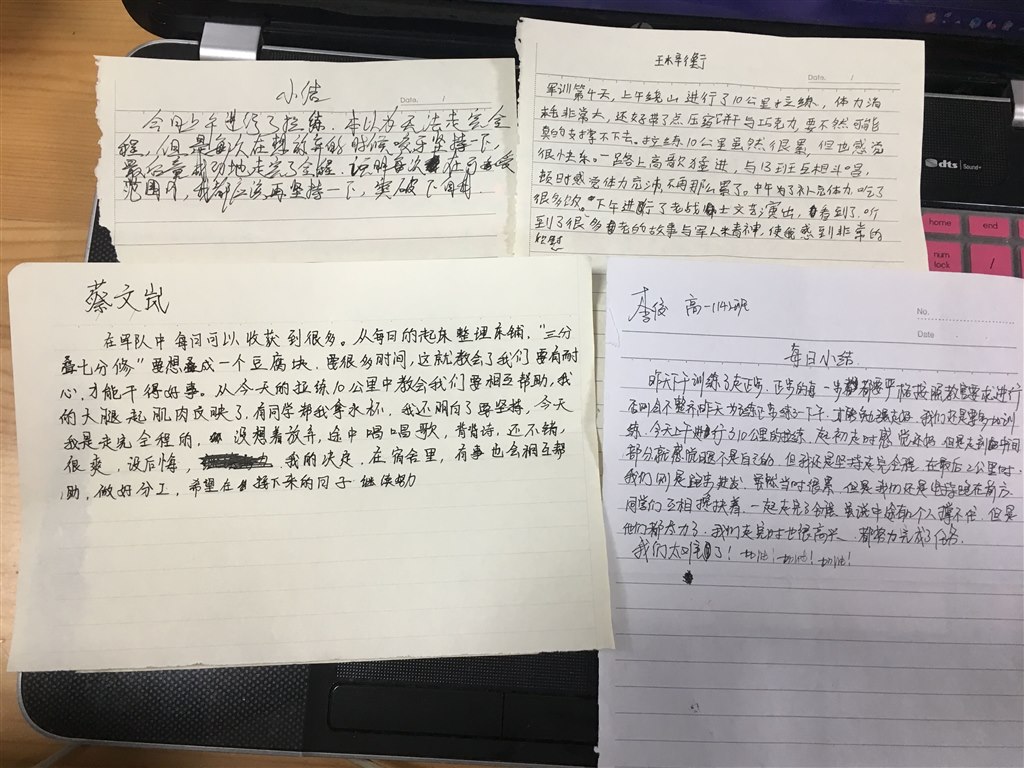 小结
Date. /
今日上午进行了拉练。本以为无法走完全
程,但是每次在想放弃的时候咬牙坚持一下,
最后竟成功地走完了全程。证明每次在可接受
范围内,我都应该再坚持一下,突破下自我
Date. /
军训第4天,上午绕山进行了10公里拉练,体力消
耗非常大,还好带了点压缩饼干与巧克力,要不然可能
真的支撑不下去。拉练10公里虽然很累,但也感觉
很快乐。一路上高歌猛进,与13班互相斗唱,
顿时感觉体力充沛,不再那么累了。中午为了补充体力,吃了
很多饭。下午进行了老战士文艺演出,看到了、听
到了很多老的故事与军人精神,使我感到非常的
欣慰
dts Sound+
home
end
num
lock
/
蔡文岚
在军队中每日可以收获到很多。从每日的起床整理床铺,“三分
叠七分修”要想叠成一个豆腐块,要很多时间,这就教会了我们要有耐
心,才能干得好事。从今天的拉练10公里中教会我们要相互帮助,我
的大腿起肌肉反映了,有同学帮我拿水杯,我还明白了要坚持,今天
我是走完全程的,没想着放弃,途中唱唱歌,背背诗,还不错,
很爽,没后悔,我的决定,在宿舍里,有事也会相互帮
助,做好分工,希望在接下来的日子继续努力
高一(14)班
No.
Date
每日小结
昨天下午训练了走正步,正步的每一步都要严格按照教官要求进行
否则会不整齐,昨天我们还是要多加训
练,今天上午进行了10公里的拉练,起初走时感觉还好,但是走到中间
部分就感觉腿不是自己的,但我还是坚持走完全程,在最后2公里时,
我们则是跑步进发,虽然当时很累,但是我们还是在前方,
同学们互相搀扶着,一起走完了全程,虽说中途有几个人撑不住,但是
他们都尽力了,我们走完时也很高兴,都努力完成了任务,
我们太可爱了!加油!加油!加油!